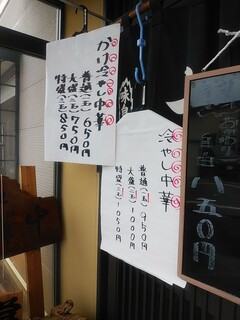 かけ冷やし中華
普通(一玉) 650円
大盛(二玉) 750円
特盛(三玉) 850円
冷やし中華
普通(一玉) 950円
大盛(二玉) 1000円
特盛(三玉) 1050円
八五〇円